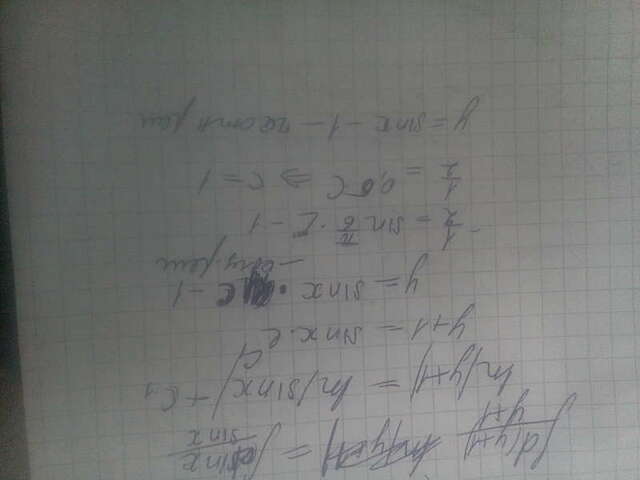 ∫ d(y+1)/(y+1) = ∫ dsinx/sinx
ln|y+1| = ln|sinx| + C₁
y+1 = sinx·e^C₁
y = sinx · C - 1
-1/2 = sin π/6 · C - 1
1/2 = 0,5C ⇒ C = 1
y = sinx - 1 - частн реш